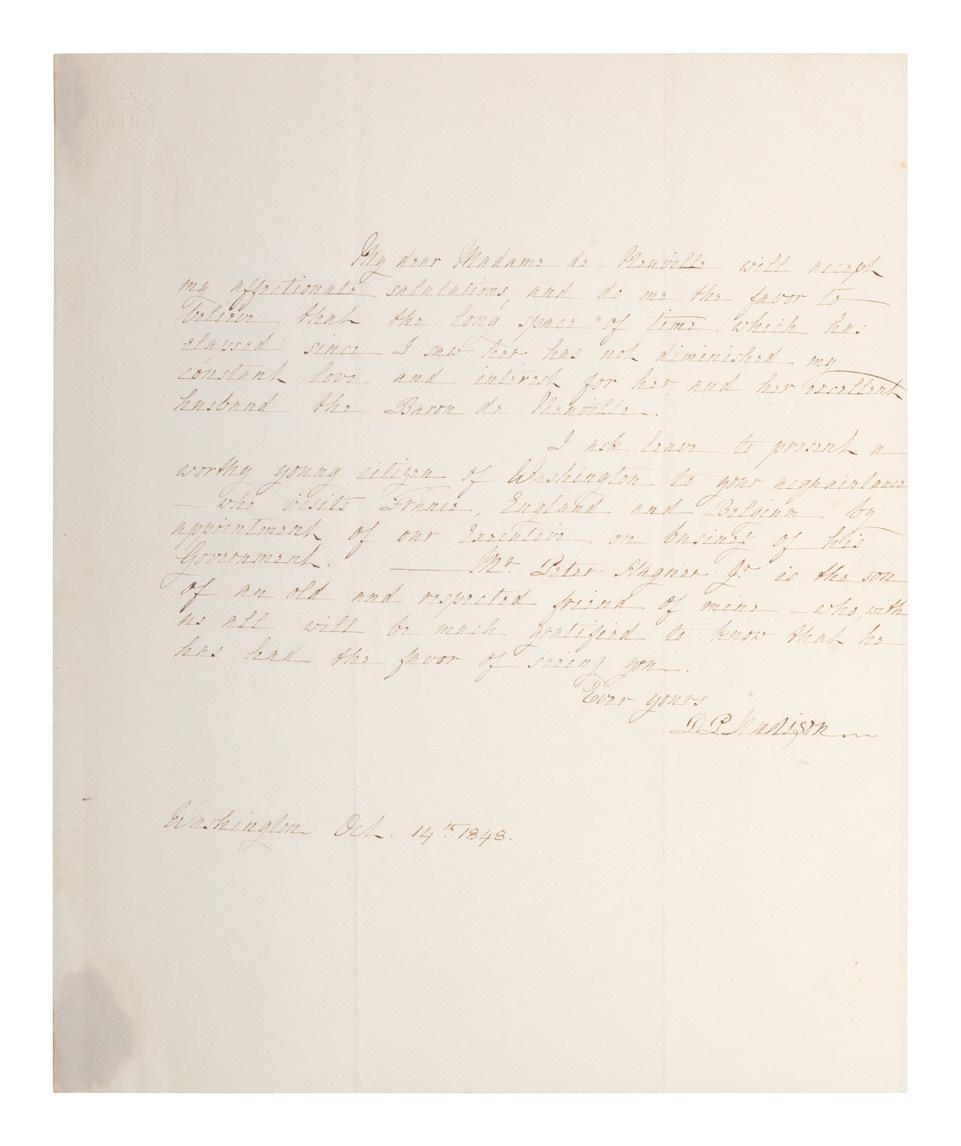 My dear Madame de Neuville will accept
my affectionate salutations, and do me the favor to
believe that the long space of time which has
elapsed since I saw her has not diminished my
constant love and interest for her and her excellent
husband the Baron de Neuville.
I ask leave to present a
worthy young citizen of Washington to your acquaintance
– who visits France, England and Belgium by
appointment of our Executive on business of his
Government. — Mr. Peter Hagner Jr. is the son
of an old and respected friend of mine – who, with
us all will be much gratified to know that he
has had the favor of seeing you.
Ever yours
D. P. Madison
Washington Oct. 14th 1848.